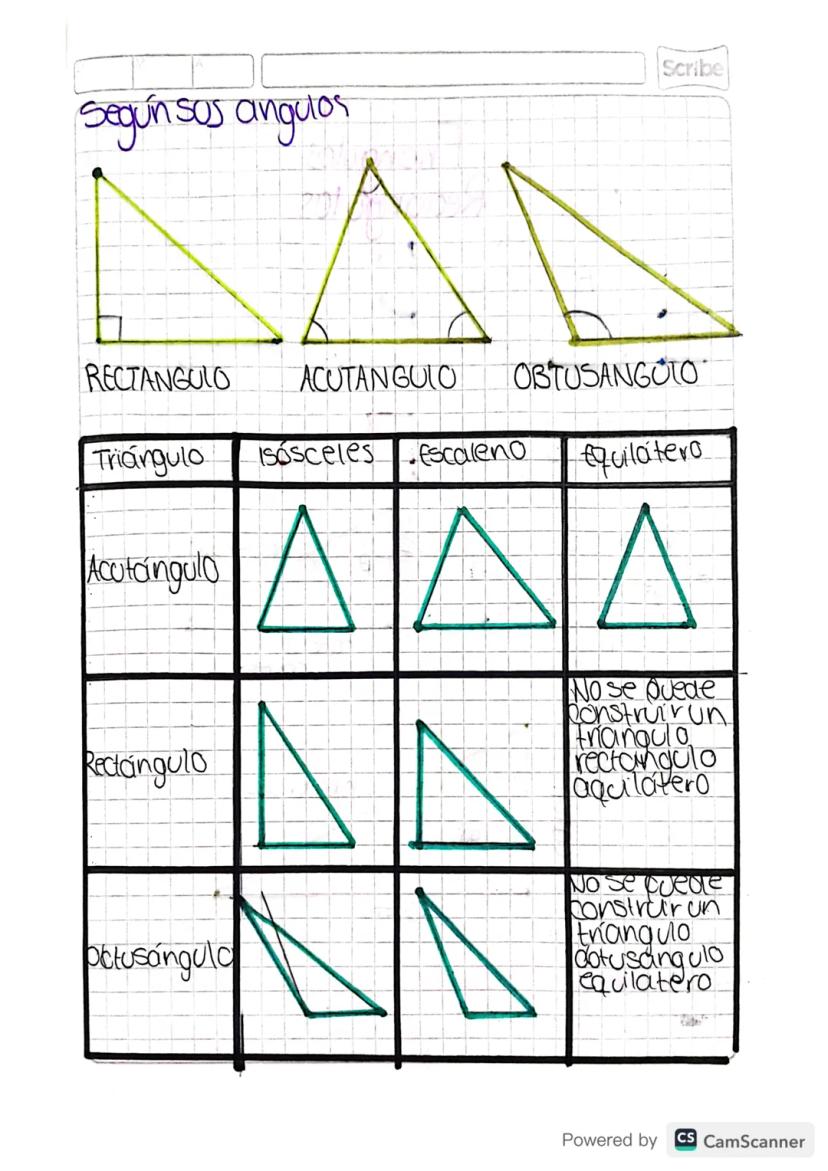 Scribe
Según sus angulos
RECTANGULO ACUTANGULO OBTUSANGULO
Triángulo Isósceles Escaleno Equilátero
Acutángulo
Rectángulo
No se puede
construir un
triangulo
rectangulo
aquilátero
Obtusángulo
No se puede
construir un
triangulo
obtusangulo
equilatero
Powered by CS CamScanner